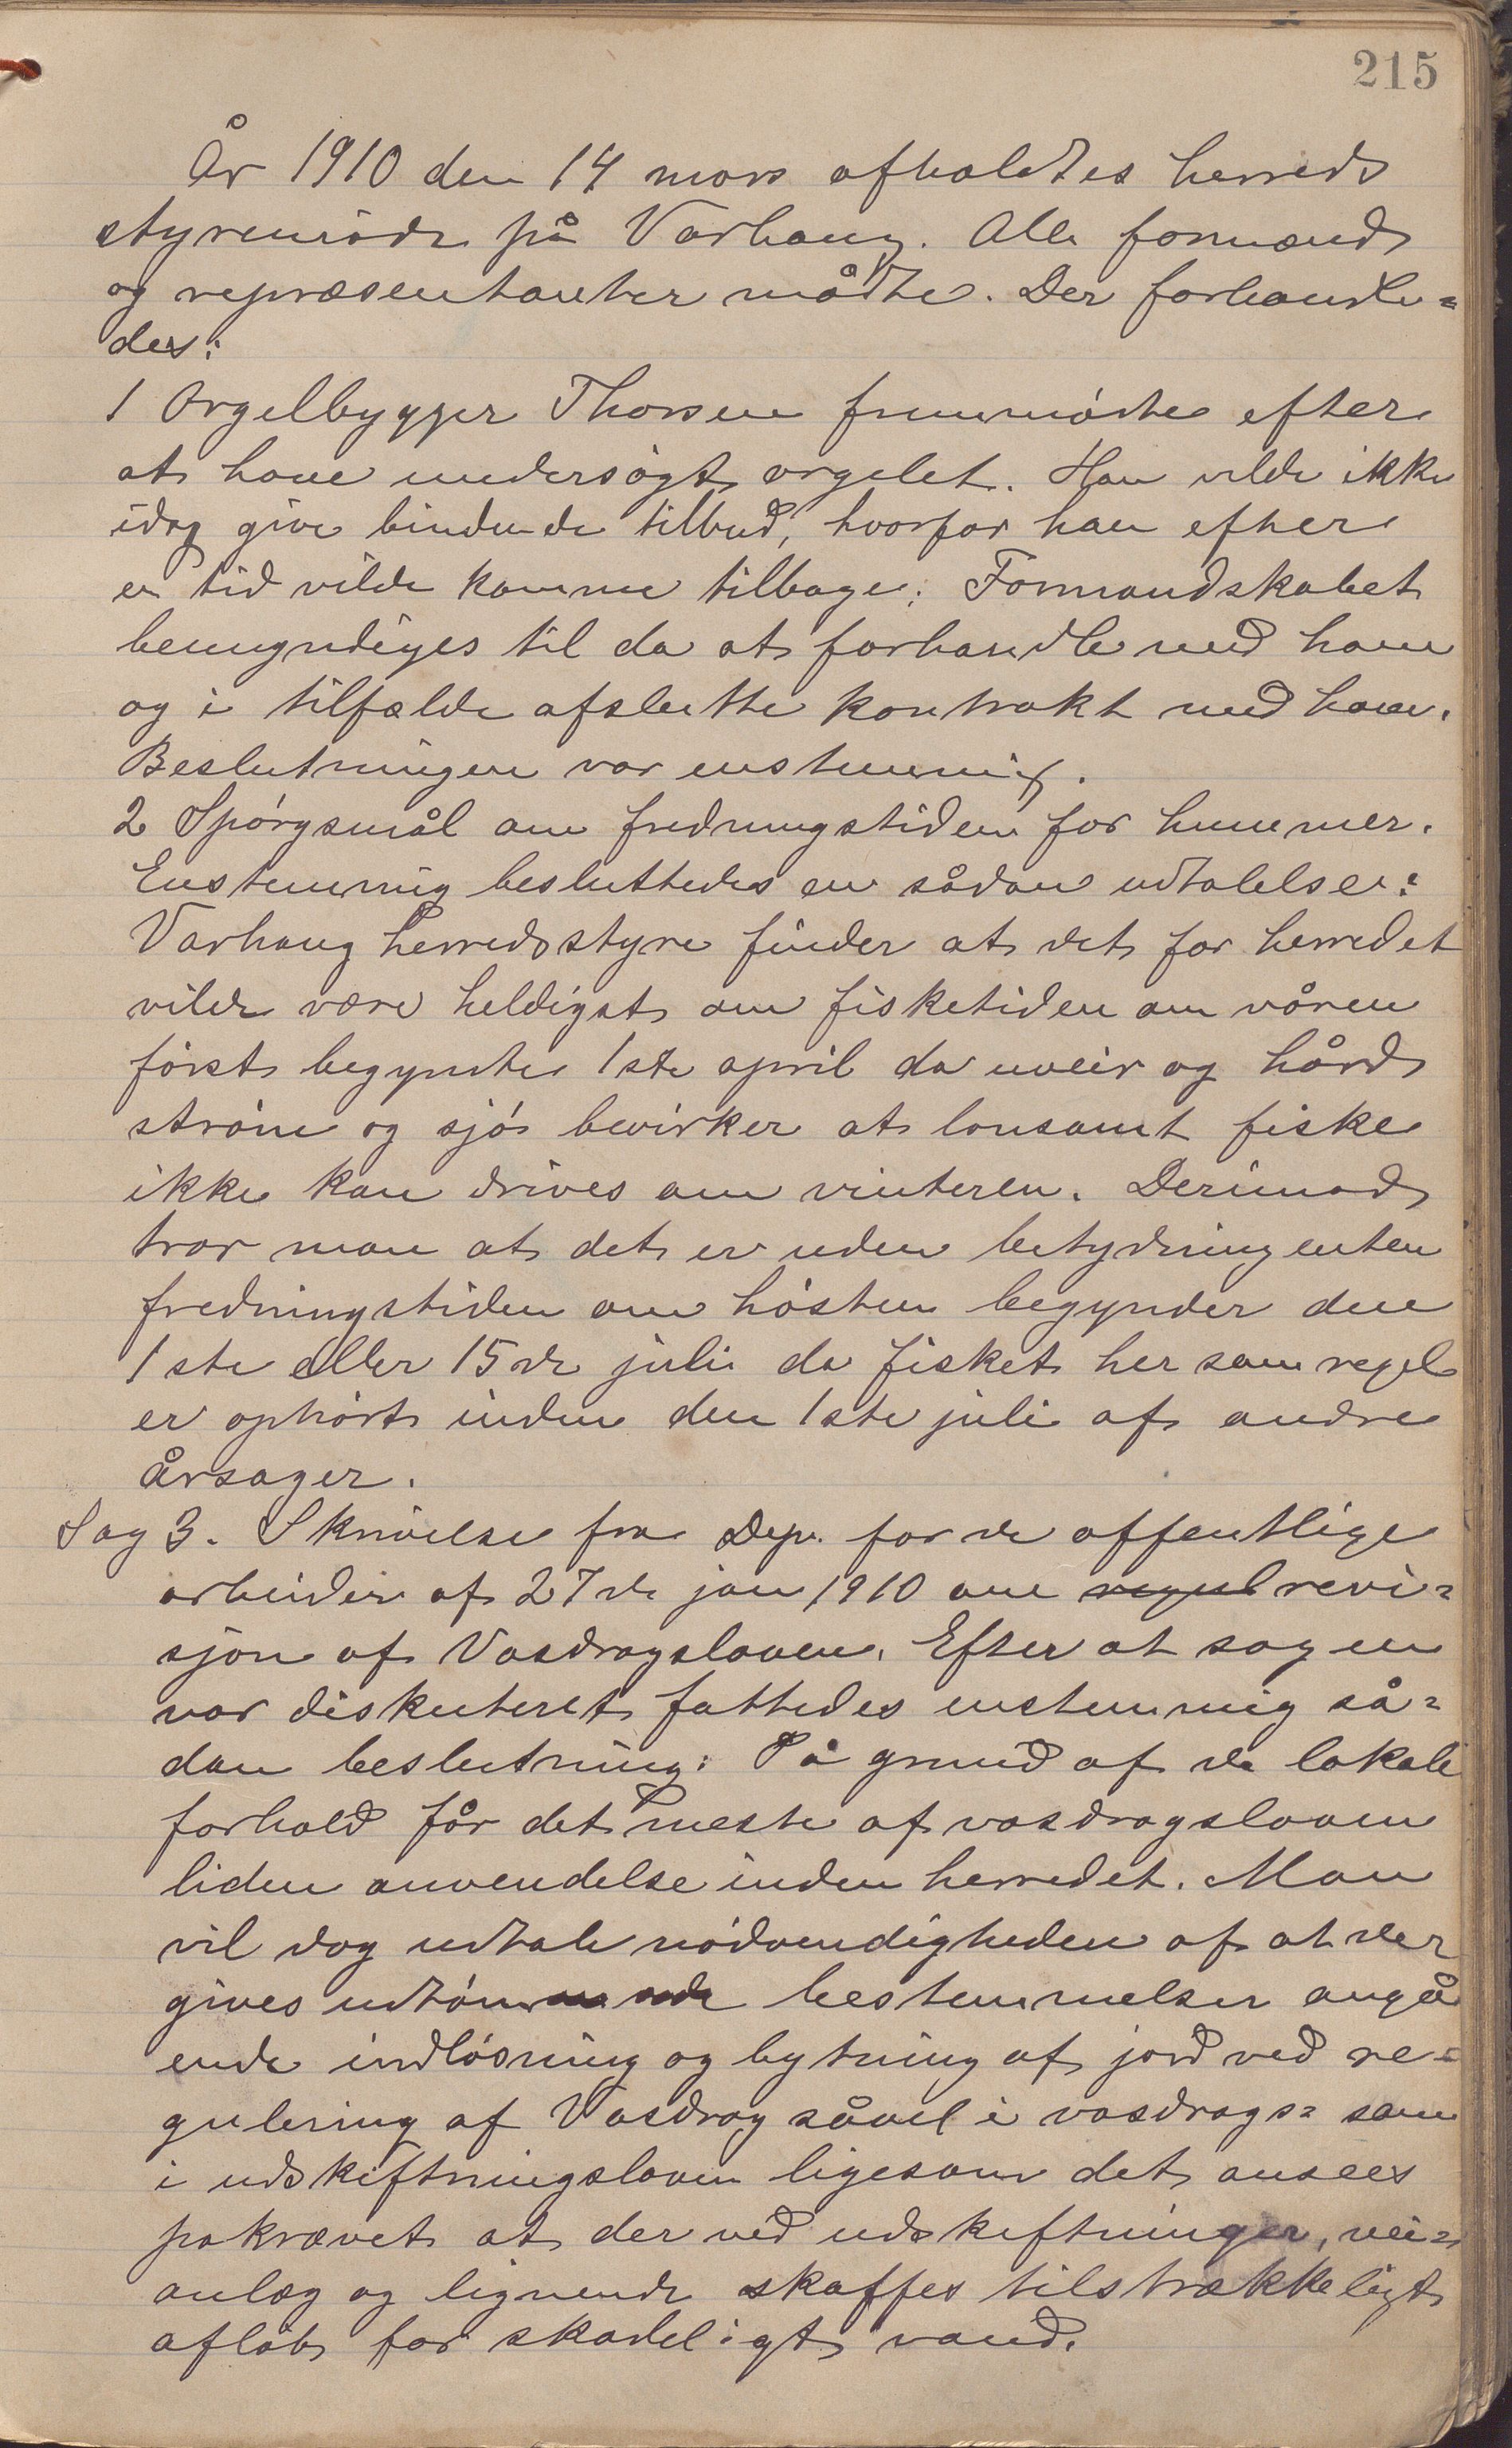 215
År 1910 den 14 mars afholdtes herreds
styremöde på Varhaug. Alle formænd
og repræsentanter mådte. Der forhandle=
des:
1 Orgelbygger Thorsen fremmödte efter
at have undersögt orgelet. Han vilde ikke
idag give bindende tilbud, hvorfor han efter
en tid vilde komme tilbage; Formandskabet
bemyndiges til da at forhandle med ham
og i tilfælde afslutte kontrakt med ham.
Beslutningen var enstemmig.
2 Spörgsmål om fredningstiden for hummer.
Enstemmig besluttedes en sådan udtalelse:
Varhaug herredsstyre finder at det for herredet
vilde være heldigst om fisketiden om våren
först begyndte 1ste april da uveir og hård
ström og sjö bevirker at lonsamt fiske
ikke kan drives om vinteren. Derimod
tror man at det er uden betydning enten
fredningstiden om hösten begynder den
1ste eller 15de juli da fisket her som regel
er ophört inden den 1ste juli af andre
årsager.
Sag 3. Skrivelse fra Dep. for de offentlige
arbeider af 27de jan 1910 om regul revi=
sjon af Vasdragsloven. Efter at sagen
var diskuteret fattedes enstemmig så=
dan beslutning: På grund af de lokale
forhold får det meste af vasdragsloven
liden anvendelse inden herredet. Man
vil dog udtale nödvendigheden af at der
gives udtömmende bestemmelser angå
ende indlösning og bytning af jord ved re=
gulering af Vasdrag såvel i vasdrags= som
i udskiftningsloven ligesom det ansees
påkrævet at der ved udskiftninger, vei=
anlæg og lignende skaffes tilstrækkeligt
aflöb for skadeligt vand.